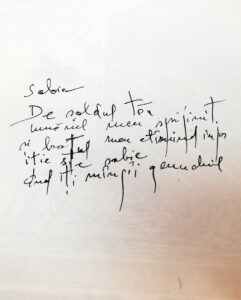 Sabia
De șoldul tău
umărul meu sprijinit
și brațul meu atârnând in jos
iți e sabie
când iți mângâi genunchiul